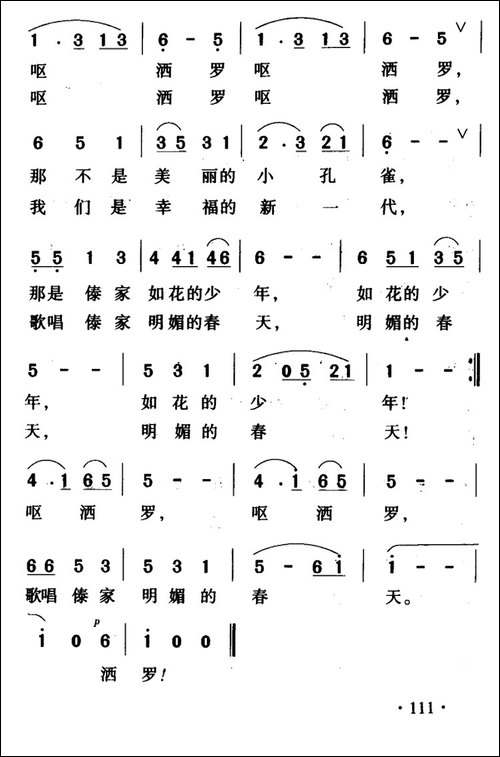 1 · 3 1 3 | 6 - 5 | 1 · 3 1 3 | 6 - 5 ∨ |
呕 洒 罗 呕 洒 罗,
呕 洒 罗 呕 洒 罗,
6 5 1 | 3 5 3 1 | 2 · 3 2 1 | 6 - - ∨ |
那 不 是 美 丽的 小 孔 雀,
我 们 是 幸 福的 新 一 代,
5 5 1 3 | 4 4 1 4 6 | 6 - - | 6 5 1 3 5 |
那是 傣 家 如花的少 年, 如 花的 少
歌唱 傣 家 明媚的春 天, 明 媚的 春
5 - - | 5 3 1 | 2 0 5 2 1 | 1 - - :||
年, 如 花 的 少 年!
天, 明 媚 的 春 天!
4 · 1 6 5 | 5 - - | 4 · 1 6 5 | 5 - - |
呕 洒 罗, 呕 洒 罗,
6 6 5 3 | 5 3 1 | 5 - 6 1 | 1 - - |
歌唱 傣 家 明 媚 的 春 天。
1 0 6 | 1 0 0 ||
p
洒 罗!
· 111 ·